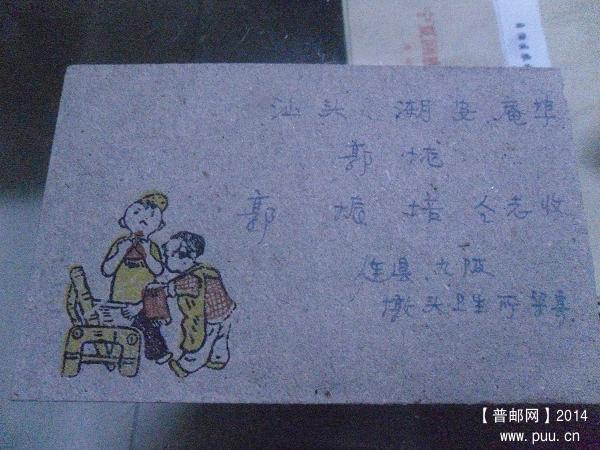 汕头 潮安 庵埠
郭 垅
郭 振 培 仝志收
连县 九陂
墩头卫生所梁寄
宁夏回族
【普邮网】2014
www.puu.cn